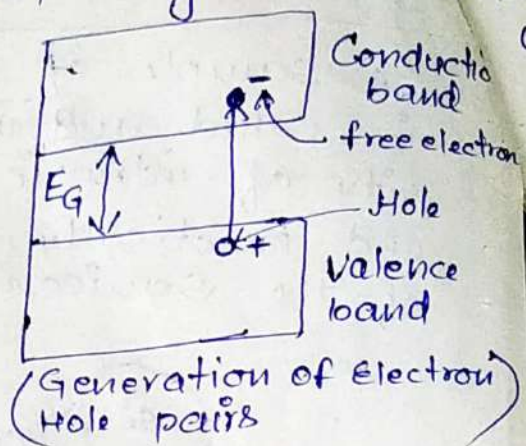 Conductio
band
free electron
-
EG
Hole
+
valence
band
(Generation of Electron
Hole pairs)